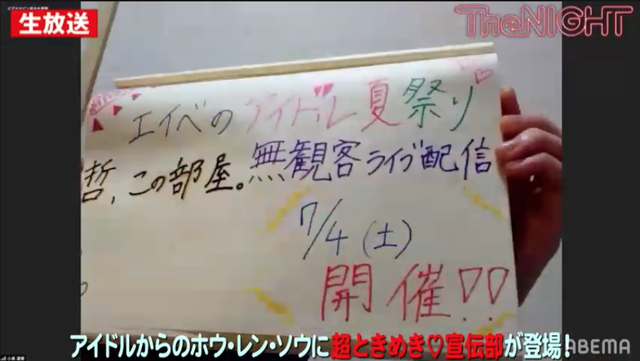 生放送
The NIGHT
エイベの アイドル 夏祭り
哲、この部屋。無観客ライブ配信
7/4(土)
開催!!
アイドルからのホウ・レン・ソウに超ときめき♡宣伝部が登場!
ABEMA